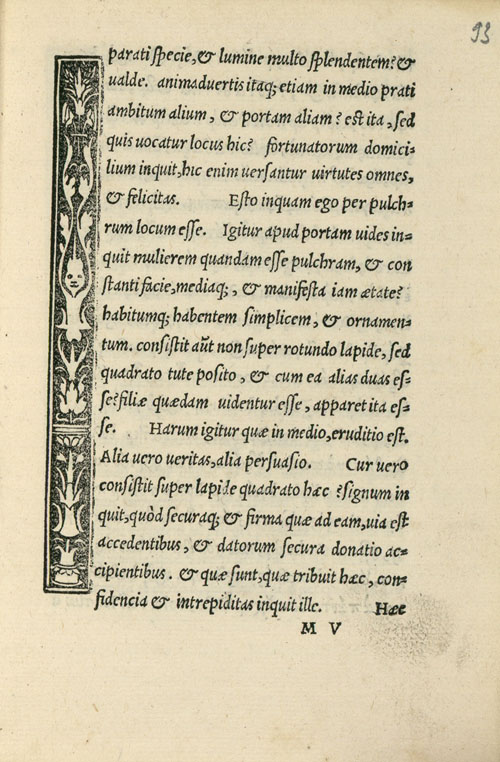 93
parati specie, & lumine multo splendentem? &
ualde. animaduertis itaq; etiam in medio prati
ambitum alium, & portam aliam? est ita, sed
quis uocatur locus hic? fortunatorum domici-
lium inquit, hic enim uersantur uirtutes omnes,
& felicitas. Esto inquam ego per pulch-
rum locum esse. Igitur apud portam uides in-
quit mulierem quandam esse pulchram, & con
stanti facie, mediaq;, & manifesta iam ætate?
habitumq; habentem simplicem, & ornamen-
tum. consistit aũt non super rotundo lapide, sed
quadrato tute posito, & cum ea alias duas es-
se? filiæ quædam uidentur esse, apparet ita es-
se. Harum igitur quæ in medio, eruditio est.
Alia uero ueritas, alia persuasio. Cur uero
consistit super lapide quadrato hæc? signum in
quit, quòd securaq; & firma quæ ad eam, uia est
accedentibus, & datorum secura donatio ac-
cipientibus. & quæ sunt, quæ tribuit hæc, con-
fidencia & intrepiditas inquit ille. Hæc
M V